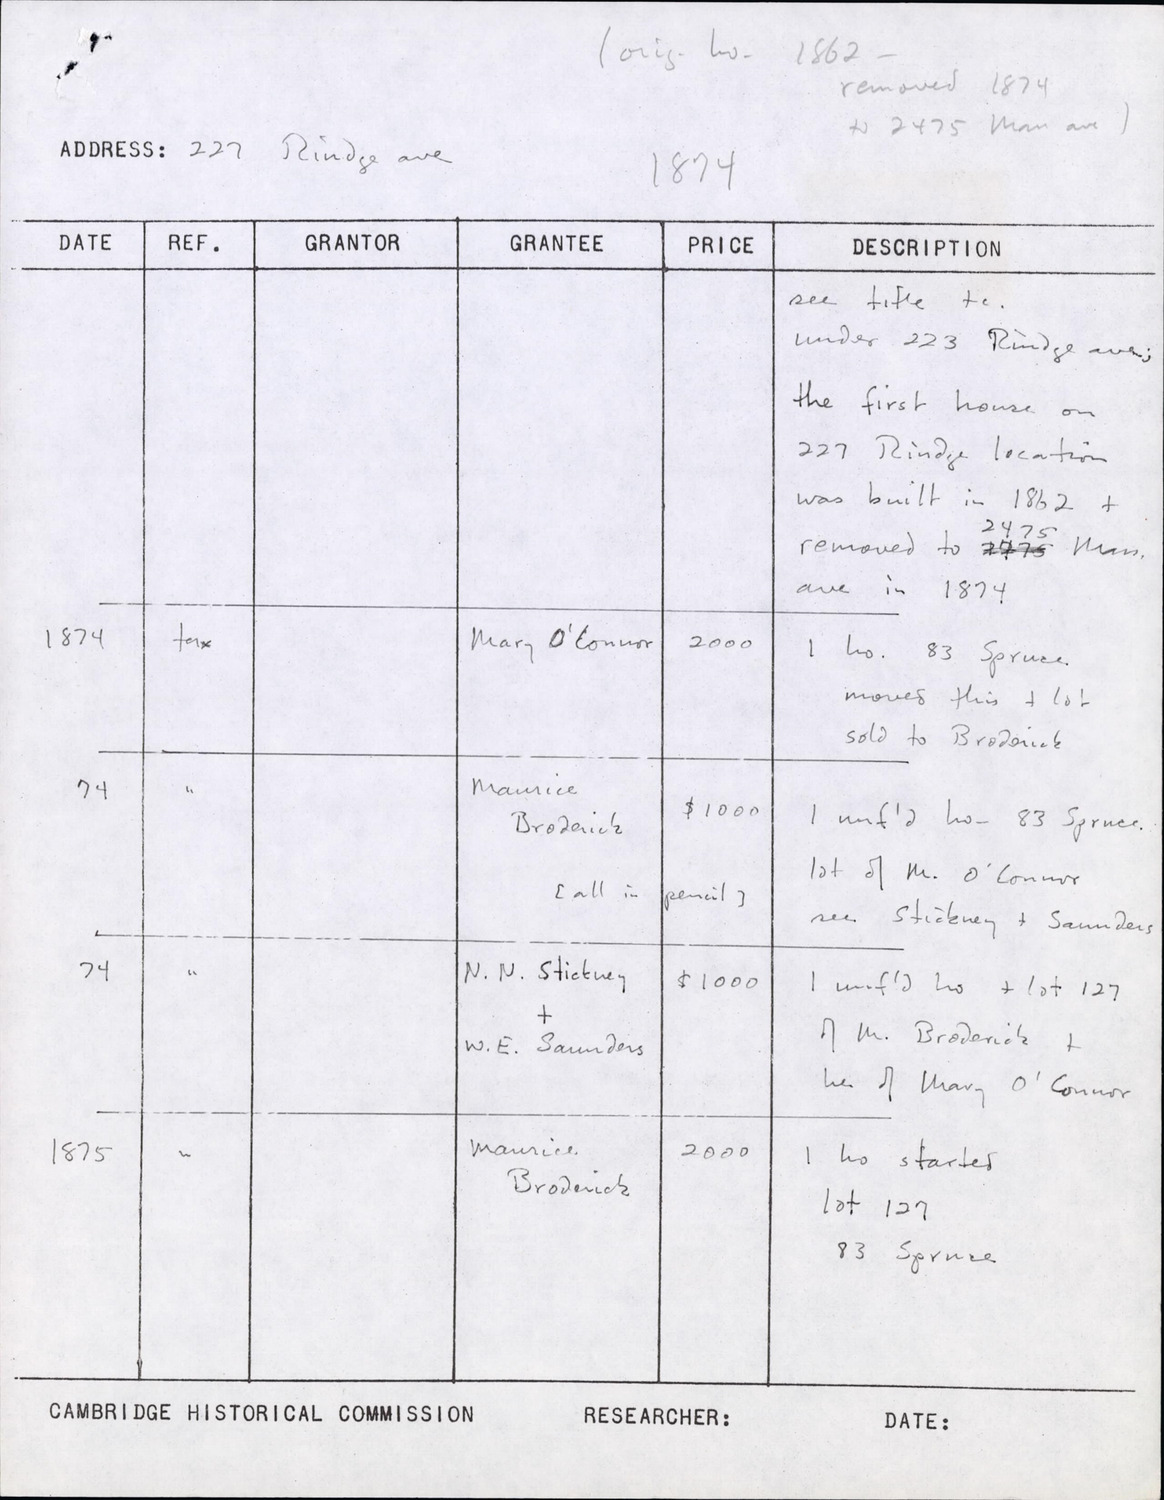 (orig. ho. 1862 -
removed 1874
to 2475 Mass ave)
ADDRESS: 227 Rindge ave
1874
DATE REF. GRANTOR GRANTEE PRICE DESCRIPTION
see title tc.
under 223 Rindge ave;
the first house on
227 Rindge location
was built in 1862 +
2475
removed to 2775 Mass.
ave in 1874
1874 tax Mary O'Connor 2000 1 ho. 83 Spruce
moves this + lot
sold to Broderick
74 " Maurice
Broderick $1000 1 unf'd ho- 83 Spruce.
lot of M. O'Connor
[all in pencil]
see Stickney + Saunders
74 " N. N. Stickney $1000 1 unf'd ho + lot 127
+
of M. Broderick +
W. E. Saunders
he of Mary O'Connor
1875 " Maurice 2000 1 ho started
Broderick
lot 127
83 Spruce
CAMBRIDGE HISTORICAL COMMISSION RESEARCHER: DATE: